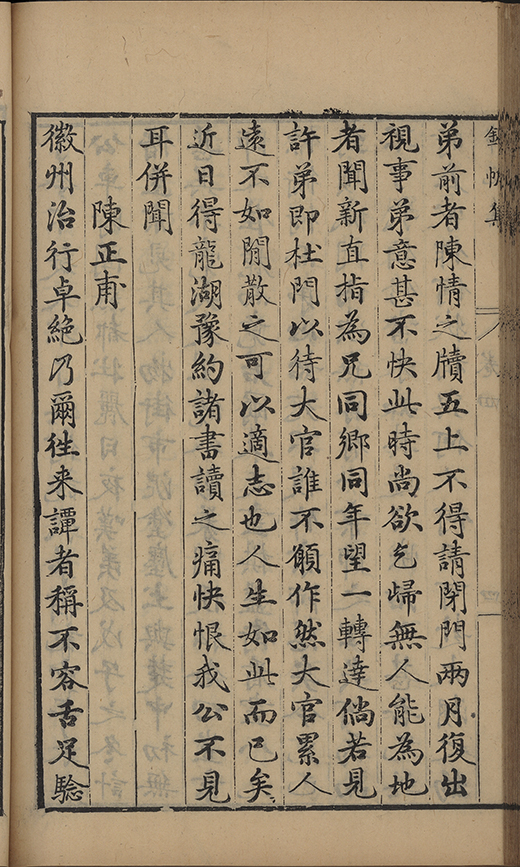 弟前者陳情之牘五上不得請閉門兩月復出
視事弟意甚不快此時尚欲乞歸無人能為地
者聞新直指為兄同鄉同年望一轉達倘若見
許弟即杜門以待大官誰不願作然大官累人
遠不如閒散之可以適志也人生如此而已矣
近日得龍湖豫約諸書讀之痛快恨我公不見
耳併聞
陳正甫
徽州治行卓絕乃爾徃来譚者稱不容舌足驗